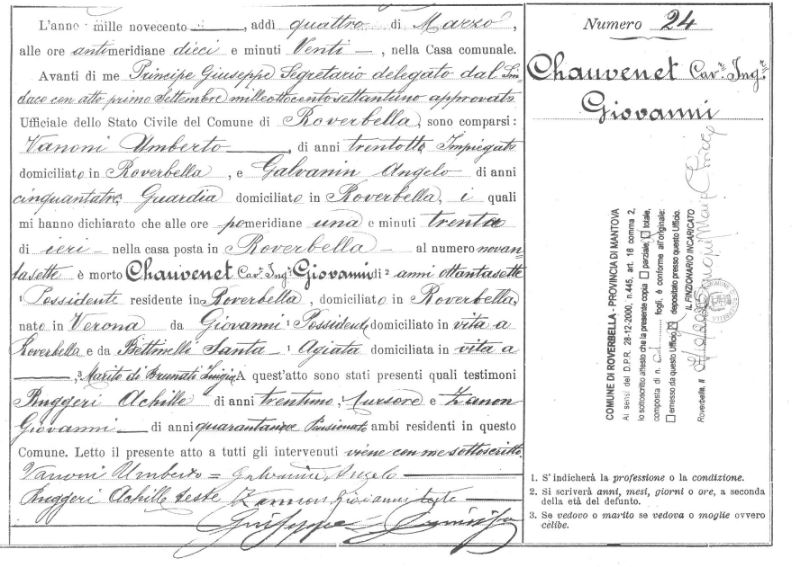 L'anno mille novecento —, addì quattro di Marzo,
alle ore antimeridiane dieci e minuti Venti —, nella Casa comunale.
Avanti di me Principe Giuseppe Segretario delegato dal Sin
daco con atto primo Settembre milleottocentosettantuno approvato
Ufficiale dello Stato Civile del Comune di Roverbella, sono comparsi:
Vanoni Umberto —, di anni trentotto Impiegato
domiciliato in Roverbella, e Galvanin Angelo di anni
cinquantatre, Guardia domiciliato in Roverbella, i quali
mi hanno dichiarato che alle ore pomeridiane una e minuti trenta
di ieri — nella casa posta in Roverbella — al numero novan
tasette è morto Chauvenet Cav.r Ing.r Giovanni di ² anni ottantasette
¹ Possidente residente in Roverbella, domiciliato in Roverbella,
nato in Verona da Giovanni ¹ Possidente domiciliato in vita a
Roverbella e da Bettinelli Santa ¹ Agiata domiciliata in vita a
—, ³ Marito di Brunati Luigia A quest'atto sono stati presenti quali testimoni
Ruggeri Achille di anni trentuno, Cursore e Zanon
Giovanni — di anni Pensionato ambi residenti in questo
Comune. Letto il presente atto a tutti gli intervenuti viene con me sottoscritto
Vanoni Umberto = Galvanin Angelo
Ruggeri Achille teste Giovanni teste
Giuseppe
Numero 24
Chauvenet Cav.r Ing.r
Giovanni
COMUNE DI ROVERBELLA - PROVINCIA DI MANTOVA
Ai sensi del D.P.R. 28-12-2000, n.445, art. 18 comma 2,
io sottoscritto attesto che la presente copia □ parziale, □ totale,
composta di n. fogli, è conforme all'originale:
□ emesso da questo Ufficio, ☒ depositato presso questo Ufficio.
Roverbella, lì IL FUNZIONARIO INCARICATO
1. S'indicherà la professione o la condizione.
2. Si scriverà anni, mesi, giorni o ore, a seconda
della età del defunto.
3. Se vedovo o marito se vedova o moglie ovvero
celibe.